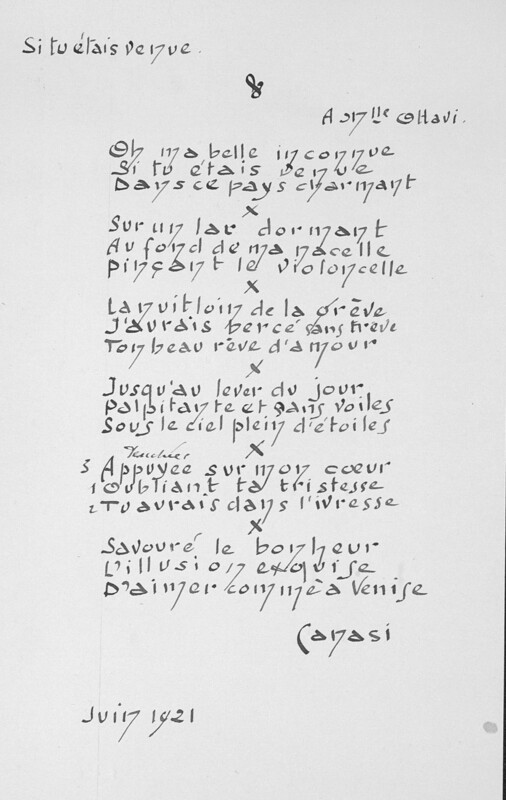 Si tu étais venue.
8
A Mlle Ottavi.
Oh ma belle inconnue
Si tu étais venue
Dans ce pays charmant
x
Sur un lac dormant
Au fond de ma nacelle
Pinçant le violoncelle
x
La nuit loin de la grève
J'aurais bercé sans trève
Ton beau rêve d'amour
x
Jusqu'au lever du jour
Palpitante et sans voiles
Sous le ciel plein d'étoiles
x
3 Appuyée sur mon cœur
1 Oubliant ta tristesse
2 Tu aurais dans l'ivresse
x
Savouré le bonheur
L'illusion exquise
D'aimer comme à Venise
Canasi
Juin 1921